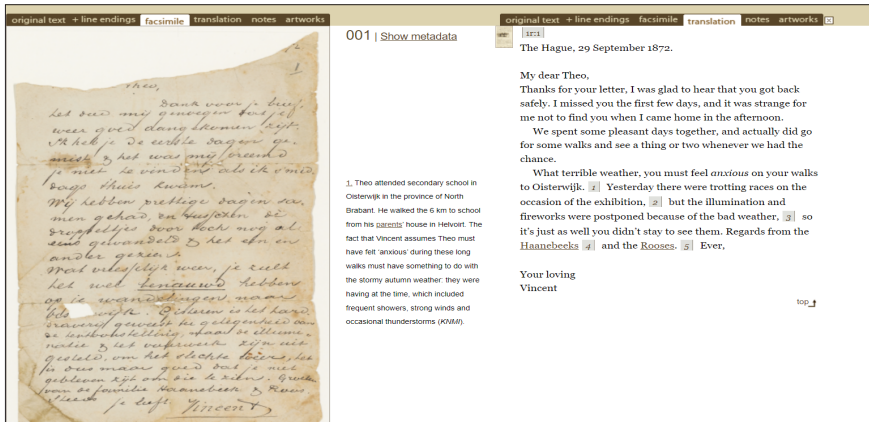 original text + line endings facsimile translation notes artworks
2
1
Theo,
Dank voor je brief,
het deed mij genoegen dat je
weer goed aangekomen zijt.
Ik heb je de eerste dagen ge-
mist & het was mij vreemd
je niet te vinden als ik s'mid-
dags thuis kwam.
Wij hebben prettige dagen sa-
men gehad, en tusschen de
droppeltjes door toch nog al
eens gewandeld & het een en
ander gezien.
Wat vreeslijk weer, je zult
het wel benauwd hebben
op je wandelingen naar
Gisteren is het hard-
draverij geweest ter gelegenheid van
de tentoonstelling, maar de illumi-
natie & het vuurwerk zijn uit-
gesteld, om het slechte weer, het
is dus maar goed dat je niet
gebleven zijt om die te zien. Groeten
van de familie Haanebeek & Roos
Steeds
je liefh. Vincent
001 | Show metadata
1. Theo attended secondary school in
Oisterwijk in the province of North
Brabant. He walked the 6 km to school
from his parents' house in Helvoirt. The
fact that Vincent assumes Theo must
have felt 'anxious' during these long
walks must have something to do with
the stormy autumn weather: they were
having at the time, which included
frequent showers, strong winds and
occasional thunderstorms (KNMI).
original text + line endings facsimile translation notes artworks x
1r:1
The Hague, 29 September 1872.
My dear Theo,
Thanks for your letter, I was glad to hear that you got back
safely. I missed you the first few days, and it was strange for
me not to find you when I came home in the afternoon.
We spent some pleasant days together, and actually did go
for some walks and see a thing or two whenever we had the
chance.
What terrible weather, you must feel anxious on your walks
to Oisterwijk. 1 Yesterday there were trotting races on the
occasion of the exhibition, 2 but the illumination and
fireworks were postponed because of the bad weather, 3 so
it's just as well you didn't stay to see them. Regards from the
Haanebeeks 4 and the Rooses. 5 Ever,
Your loving
Vincent
top